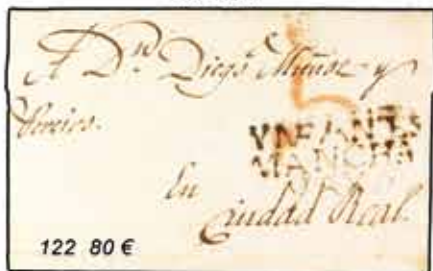 A Dn. Diego Muñoz y
VNFANTES
MANCHA
En
Ciudad Real.
122 80 €